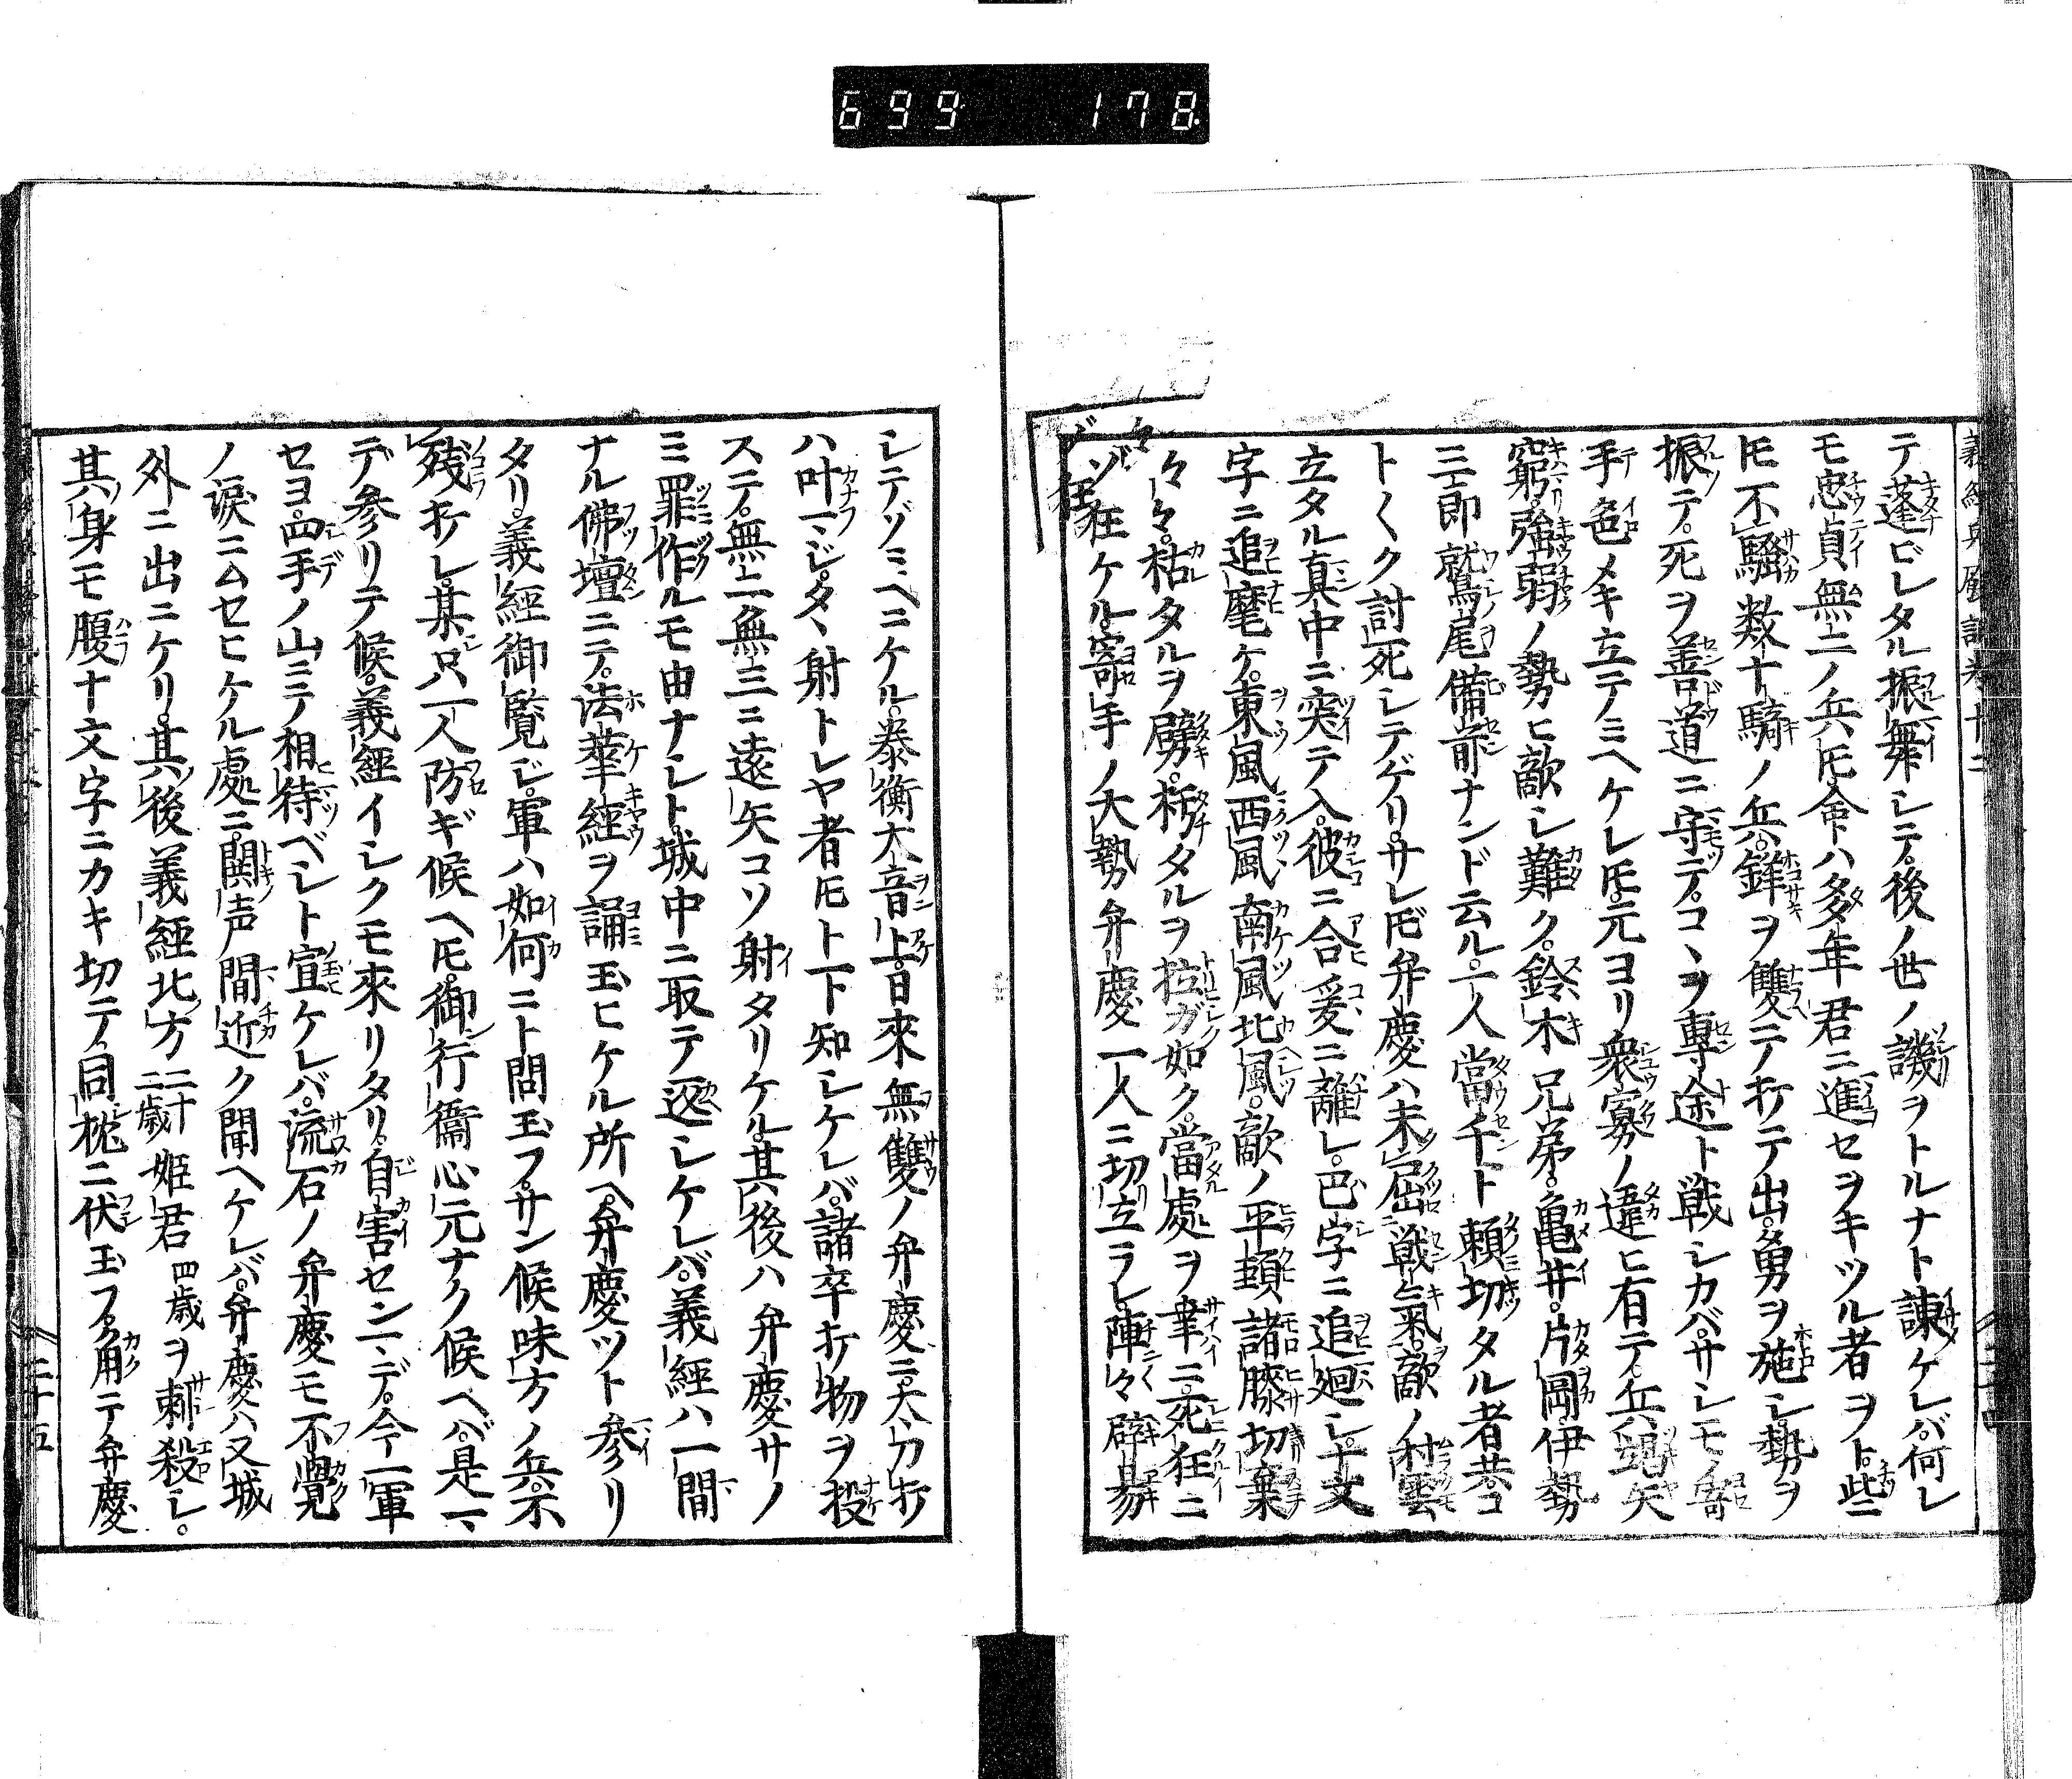 699 178
テ蓬ビレタル振舞シテ。後ノ世ノ譏ヲトルナト諌ケレバ。何レ
モ忠貞無二ノ兵𪜈。命ハ多年君ニ進セヲキツル者ヲト。些ニ
𪜈不騒数十騎ノ兵。鋒ヲ雙ニテ打テ出。勇ヲ施シ勢ヲ
振テ。死ヲ善道ニ守テ。コヽヲ専途ト戦シカバ。サシモノ寄
手色メキ立テノミヘケレ𪜈。元ヨリ衆寡ノ違ヒ有テ。兵竭矢
窮。強弱ノ勢ヒ敵シ難ク。鈴木兄弟。亀井。片岡伊勢
三郎鷲尾備前ナンド云ル。一人當千ト頼切タル者共。コ
トく〳〵ク討死シテゲリ。サレ𪜈弁慶ハ未屈戦氣。敵ノ村雲
立タル真中ニ突テ入。彼ニ合爰ニ離レ。巴字ニ追廻シ。十文
字ニ追麾ケ。東風西風南風北風。敵ノ平頸諸膝切棄
々々。枯タルヲ劈。朽タルヲ拉ガ如ク。當處ヲ幸ニ。死狂ニ
ゾ狂ケル。寄手ノ大勢弁慶一人ニ切立ラレ。陣々辟易
シテゾミヘニケル。泰衡大音上。日來無雙ノ弁慶ニ。太刀打
ハ叶マジ。タヽ射トレヤ者𪜈ト下知シケレバ。諸卒打物ヲ投
ステ。無二無三ニ遠矢コソ射タリケル。其後ハ弁慶サノ
ミ罪作ルモ由ナシト。城中ニ取テ返シケレバ。義經ハ一間
ナル佛壇ニテ。法華經ヲ誦玉ヒケル所ヘ。弁慶ツト参リ
タリ。義經御覧ジ。軍ハ如何ニト問玉フ。サン候味方ノ兵。不
残打レ。某只一人防ギ候ヘ𪜈。御行衛心元ナク候ヘバ。是マ
デ参リテ候。義經イシクモ來リタリ。自害センマデ。今一軍
セヨ。四手ノ山ニテ相待ベシト宣ケレバ。流石ノ弁慶モ不覺
ノ涙ニムセヒケル處ニ。鬨声間近ク聞ヘケレバ。弁慶ハ又城
外ニ出ニケリ。其後義經北方二十二歳姫君四歳ヲ刺殺シ。
其身モ腹十文字ニカキ切テ。同枕ニ伏玉フ。角テ弁慶
二十五